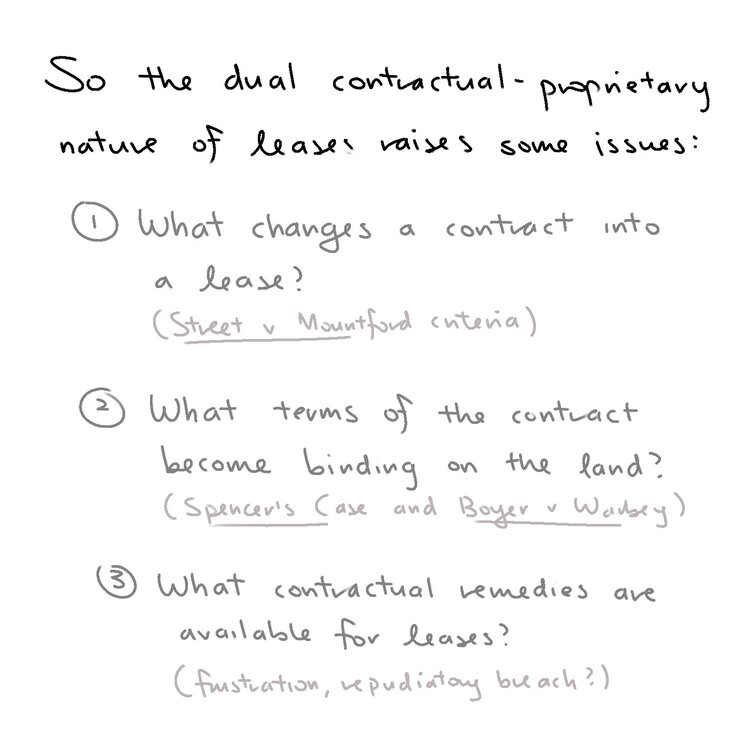 So the dual contractual-proprietary
nature of leases raises some issues:
① What changes a contract into
a lease?
(Street v Mountford criteria)
② What terms of the contract
become binding on the land?
(Spencer's Case and Boyer v Warbey)
③ What contractual remedies are
available for leases?
(frustration, repudiatory breach?)